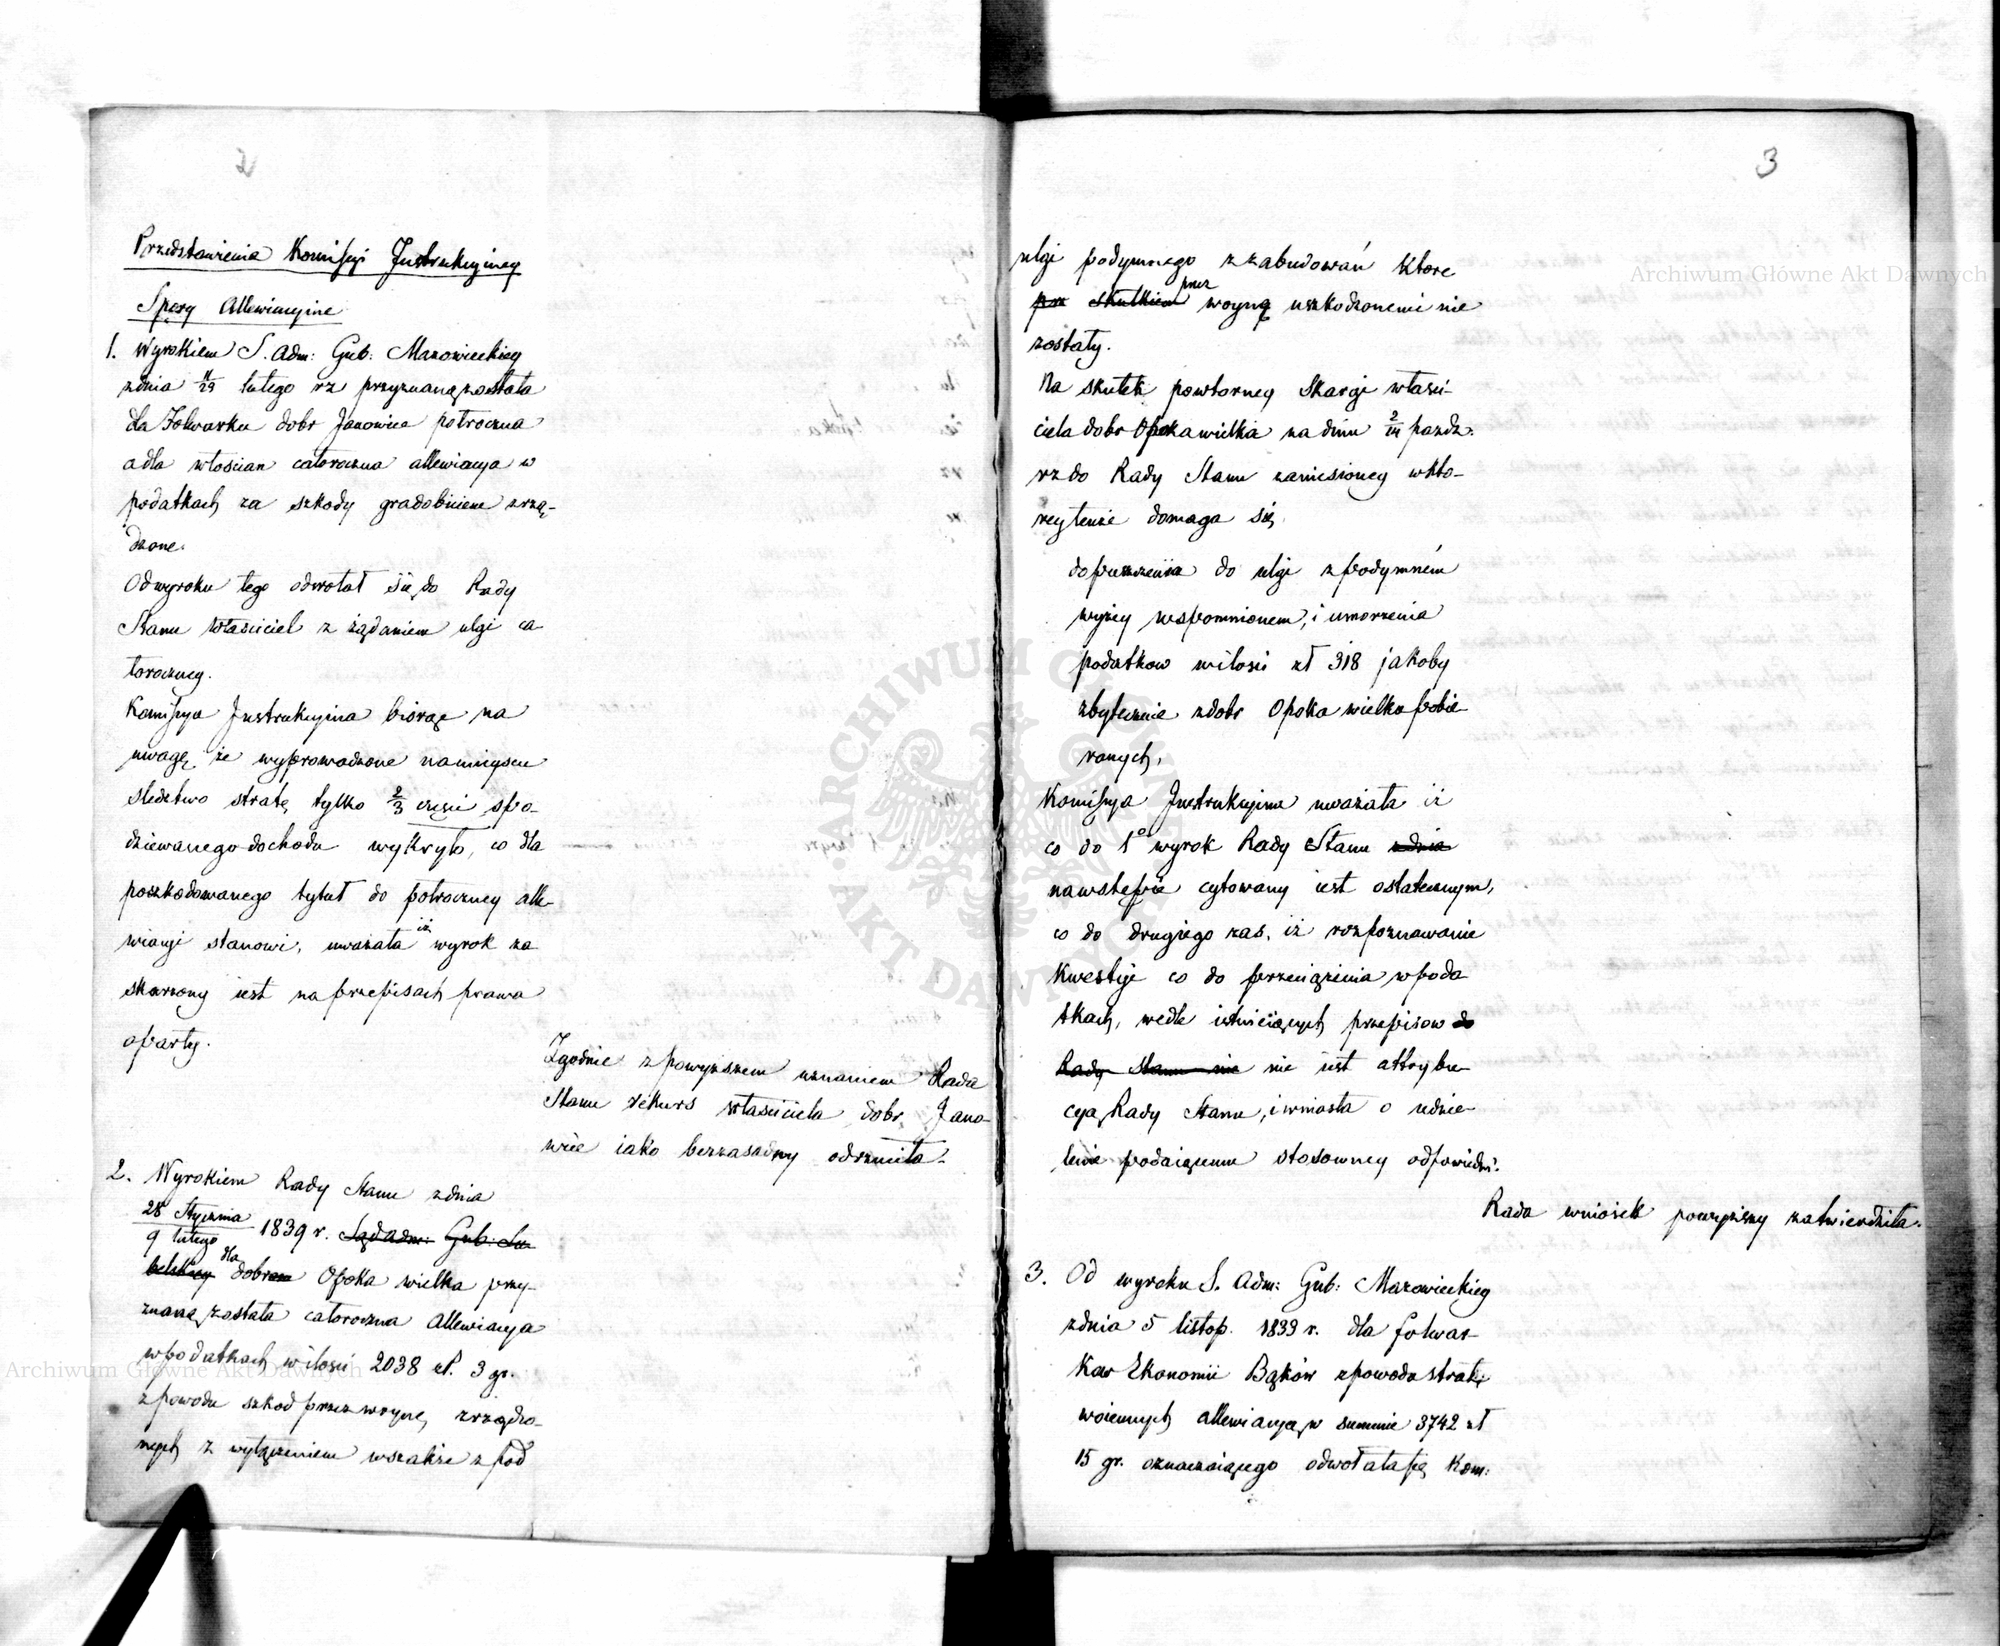 2
Przedstawienia Komissyi Instrukcyiney
Spory Allewiacyine
1. Wyrokiem S. Adm: Gub: Mazowieckiey
zdnia 11/23 lutego rz przyznaną została
dla Folwarku dobr Janowice potroczna
a dla włościan całoroczna allewiacya w
podatkach za szkody gradobiciem zrzą-
dzone.
Od wyroku tego odwołał się do Rady
Stanu Właściciel z żądaniem ulgi ca
łoroczney.
Komissya Instrukcyina biorąc na
uwagę że wyprowadzone na mieyscu
sledztwo stratę tylko 2/3 części spo-
dziewanego dochodu wykryło, co dla
poszkodowanego tytuł do potroczney alle-
wiacyi stanowi, uważała iż wyrok za
skarzony iest na przepisach prawa
oparty.
Zgodnie z powyższem uznaniem Rada
Stanu rekurs właściciela dobr Jano-
wice iako bezzasadny odrzuciła.
2. Wyrokiem Rady Stanu zdnia
28 Stycznia
9 lutego 1839 r. Sąd Adm: Gub: Lu-
belskiey dla dobr Opoka wielka przy-
znaną została całoroczna Allewiacya
w podatkach w ilości 2038 zł. 3 gr.
z powodu szkod przez woynę zrządzo-
nych z wyłączeniem wszakże z pod
3
ulgi podymnego z zabudowań ktore
skutkiem przez woynę uszkodzonemi nie
zostały.
Na skutek powtorney Skargi właści-
ciela dobr Opoka wielka na dniu 2/14 pazdz.
rz do Rady Stanu zaniesioney w kto-
rey tenże domaga się
dopuszczenia do ulgi z podymném
wyżey wspomnionem, i umorzenia
podatkow w ilości zł 318 jakoby
zbytecznie z dobr Opoka wielka pobie
ranych,
Komissya Instrukcyina uważała iż
co do 1o wyrok Rady Stanu zdnia
na wstępie cytowany iest ostatecznym,
co do drugiego zaś, iż rozpoznawanie
kwestyi co do przeciążenia w poda
tkach, wedle istnieiących przepisow do
Rady Stanu nie nie iest attrybu-
cyą Rady Stanu, i wniosła o udzie-
lenie podaiącemu stosowney odpowiedzi.
Rada wniosek powyższy zatwierdziła.
3. Od wyroku S. Adm: Gub: Mazowieckiey
zdnia 5 listop. 1839 r. dla folwar-
kow Ekonomii Bąków z powodu strat
woiennych allewiacyą w summie 3742 zł
15 gr. oznaczaiącego odwołała się Kom: